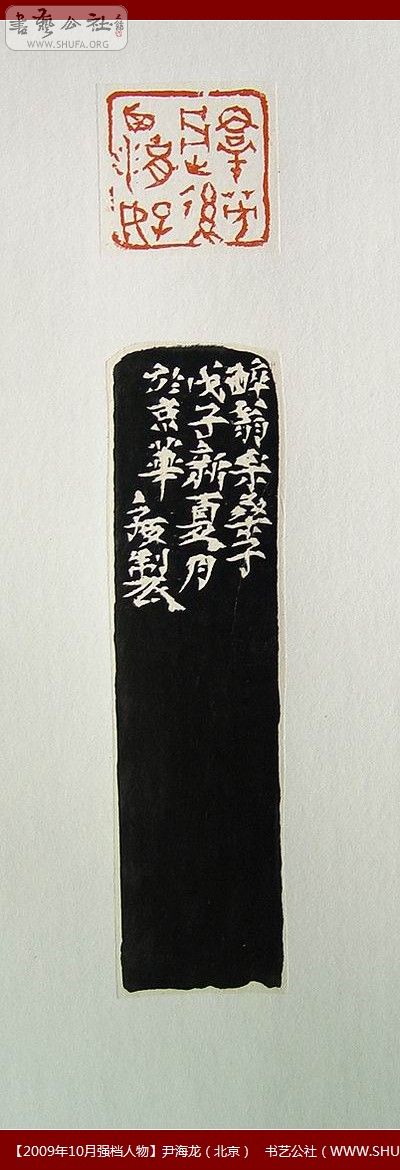 書藝公社
WWW.SHUFA.ORG
羣芳
過後
西湖好
醉翁采桑子
戊子新夏月
於京華
製
【2009年10月强档人物】尹海龙（北京） 书艺公社（WWW.SHU